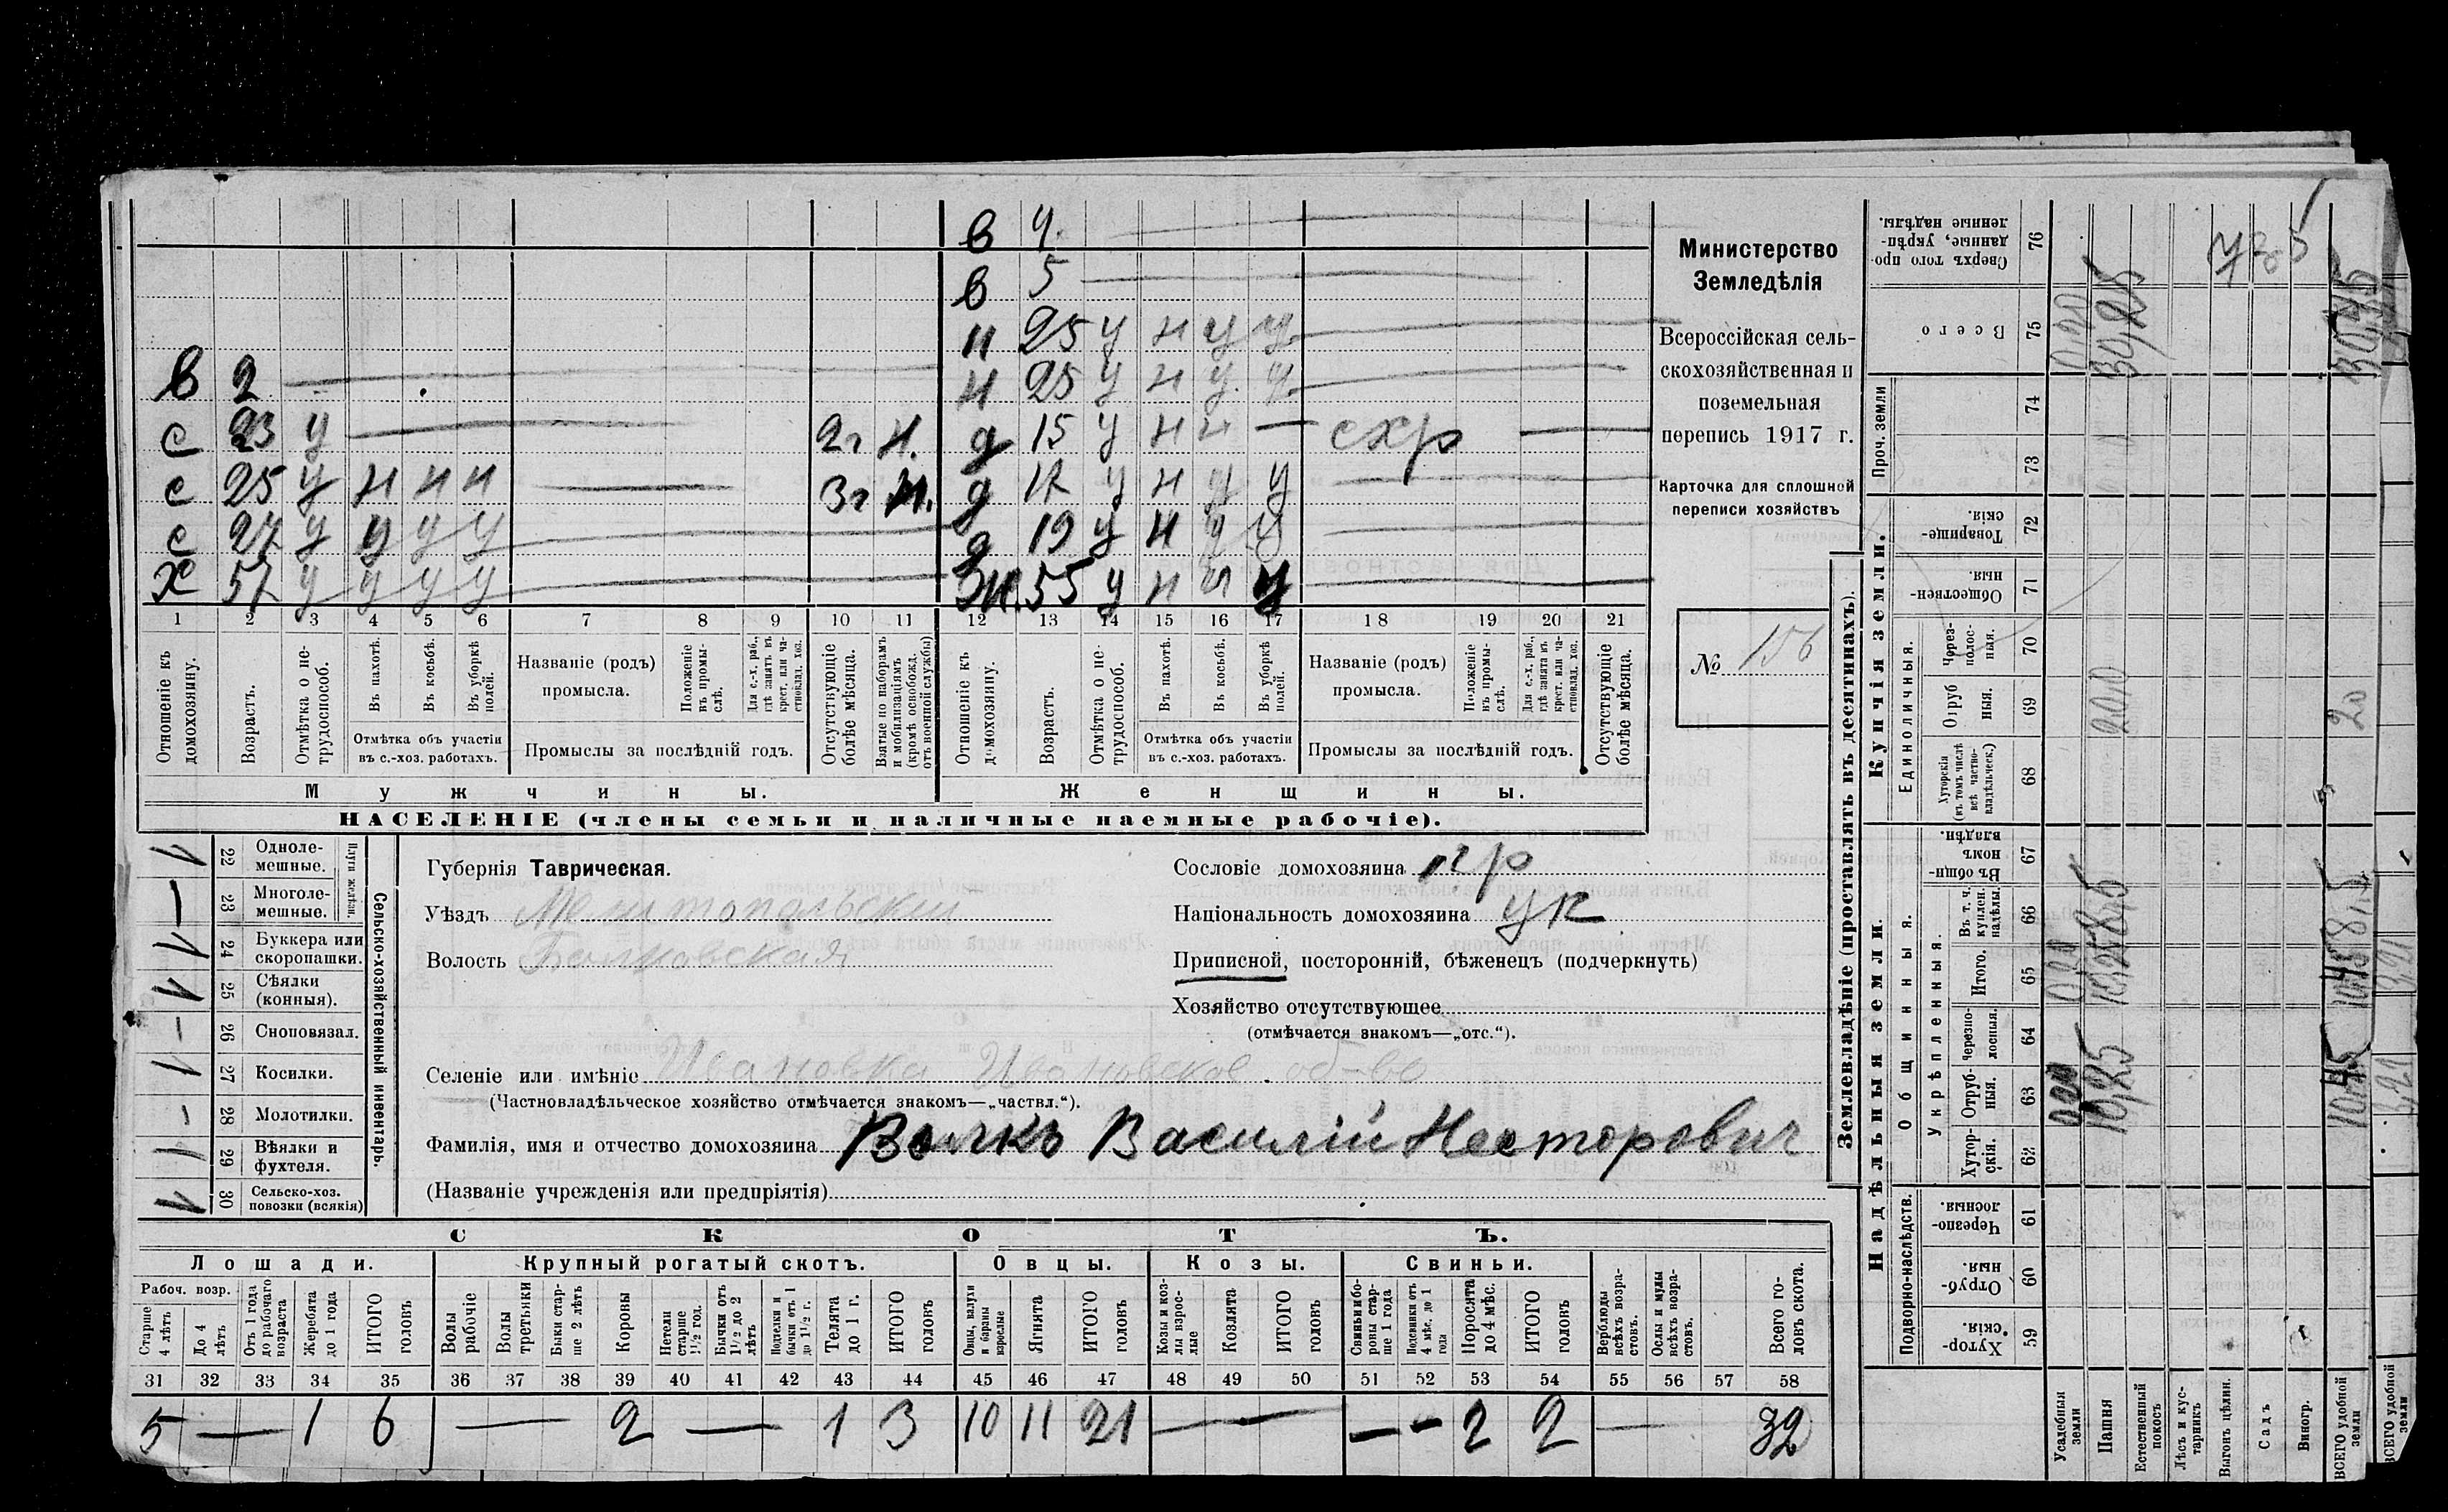 в 4
в 5
н 25 у н у у
в 2 н 25 у н у у
с 23 у 2г н. д 15 у н н — схр —
с 25 у н н н 3г н. д 17 у н у у
с 27 у у у у д 19 у н у у
х 57 у у у у жн. 55 у н н у
1 2 3 4 5 6 7 8 9 10 11 12 13 14 15 16 17 18 19 20 21
Отношеніе къ домохозяину.
Возрастъ.
Отмѣтка о не-трудоспособ.
Въ пахотѣ.
Въ косьбѣ.
Въ уборкѣ полей.
Отмѣтка объ участіи
въ с.-хоз. работахъ.
Названіе (родъ)
промысла.
Положеніе въ промы-слѣ.
Для с.-х. раб., гдѣ занятъ въ крест. или ча-стновлад. хоз.
Промыслы за послѣдній годъ.
Отсутствующіе болѣе мѣсяца.
Взятые по наборамъ и мобилизаціямъ (кромѣ освобожд. отъ военной службы)
Отношеніе къ домохозяину.
Возрастъ.
Отмѣтка о не-трудоспособ.
Въ пахотѣ.
Въ косьбѣ.
Въ уборкѣ полей.
Отмѣтка объ участіи
въ с.-хоз. работахъ.
Названіе (родъ)
промысла.
Положеніе въ промы-слѣ.
Для с.-х. раб., гдѣ занята въ крест. или ча-стновлад. хоз.
Промыслы за послѣдній годъ.
Отсутствующіе болѣе мѣсяца.
Мужчины. Женщины.
НАСЕЛЕНІЕ (члены семьи и наличные наемные рабочіе).
Министерство
Земледѣлія
Всероссійская сель-
скохозяйственная и
поземельная
перепись 1917 г.
Карточка для сплошной
переписи хозяйствъ
№ 156
1 22 Одноле-мешные.
— 23 Многоле-мешные.
Плуги желѣзн.
1 24 Буккера или скоропашки.
1 25 Сѣялки (конныя).
— 26 Сноповязал.
1 27 Косилки.
— 28 Молотилки.
1 29 Вѣялки и фухтеля.
30 Сельско-хоз. повозки (всякія)
Сельско-хозяйственный инвентарь.
Губернія Таврическая.
Уѣздъ Мелитопольскій
Волость
Сословіе домохозяина кр
Національность домохозяина ук
Приписной, посторонній, бѣженецъ (подчеркнуть)
Хозяйство отсутствующее
(отмѣчается знакомъ—„отс.“).
Селеніе или имѣніе Ивановка Ивановское об-во
(Частновладѣльческое хозяйство отмѣчается знакомъ—„частвл.“).
Фамилія, имя и отчество домохозяина Волкъ Василій Несторович
(Названіе учрежденія или предпріятія)
СКОТЪ.
Лошади. Крупный рогатый скотъ. Овцы. Козы. Свиньи.
Рабоч. возр.
Старше 4 лѣтъ
До 4 лѣтъ
Отъ 1 года до рабочаго возраста
Жеребята до 1 года
ИТОГО головъ
Волы рабочіе
Волы третьяки
Быки стар-ше 2 лѣтъ
Коровы
Нетели старше 1½ год.
Бычки отъ 1½ до 2 лѣтъ
Подтелки и бычки отъ 1 до 1½ г.
Телята до 1 г.
ИТОГО головъ
Овцы, валухи и бараны взрослые
Ягнята
ИТОГО головъ
Козы и коз-лы взрос-лые
Козлята
ИТОГО головъ
Свиньи и бо-ровы стар-ше 1 года
Подсвинки отъ 4 мѣс. до 1 года
Поросята до 4 мѣс.
ИТОГО головъ
Верблюды всѣхъ возра-стовъ.
Ослы и мулы всѣхъ возра-стовъ.
Всего го-ловъ скота.
31 32 33 34 35 36 37 38 39 40 41 42 43 44 45 46 47 48 49 50 51 52 53 54 55 56 57 58
5 — 1 6 — 2 — 1 3 10 11 21 — — — 2 2 — 32
Землевладѣніе (проставлять въ десятинахъ).
Надѣльныя земли.
Купчія земли.
Проч. земли
Подворно-наслѣдств.
Общинныя.
Укрѣпленныя.
Единоличныя.
Сверхъ того про-данные, укрѣп-ленные надѣлы. 76
Всего 75
74
73
Товарище-скія. 72
Обществен-ныя. 71
Через-полос-ныя. 70
Отруб-ныя. 69
20,0
20
Хуторскія (въ томъ числѣ всѣ частно-владѣльческ.) 68
Въ общин-номъ владѣн. 67
Въ т. ч. куплен. надѣлы. 66
Итого. 65
Черезпо-лосныя. 64
Отруб-ныя. 63
10,25
10,45
Хутор-скія. 62
Черезпо-лосныя. 61
Отруб-ныя. 60
Хутор-скія. 59
Усадебныя земли
Пашня
Естественный покосъ
Лѣсъ и кус-тарникъ
Выгонъ цѣлин.
Садъ
Виногр.
ВСЕГО удобной земли
ВСЕГО удобной земли